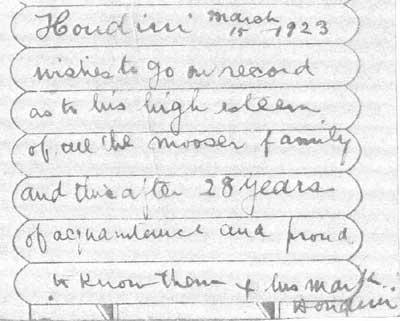 Houdini March 15 1923
wishes to go on record
as to his high esteem
of all the mooser family
and this after 28 years
of acquaintance and proud
to know them + his mark.
Houdini